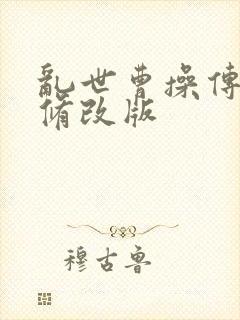 亂世曹操傳
脩改版
穆古魯